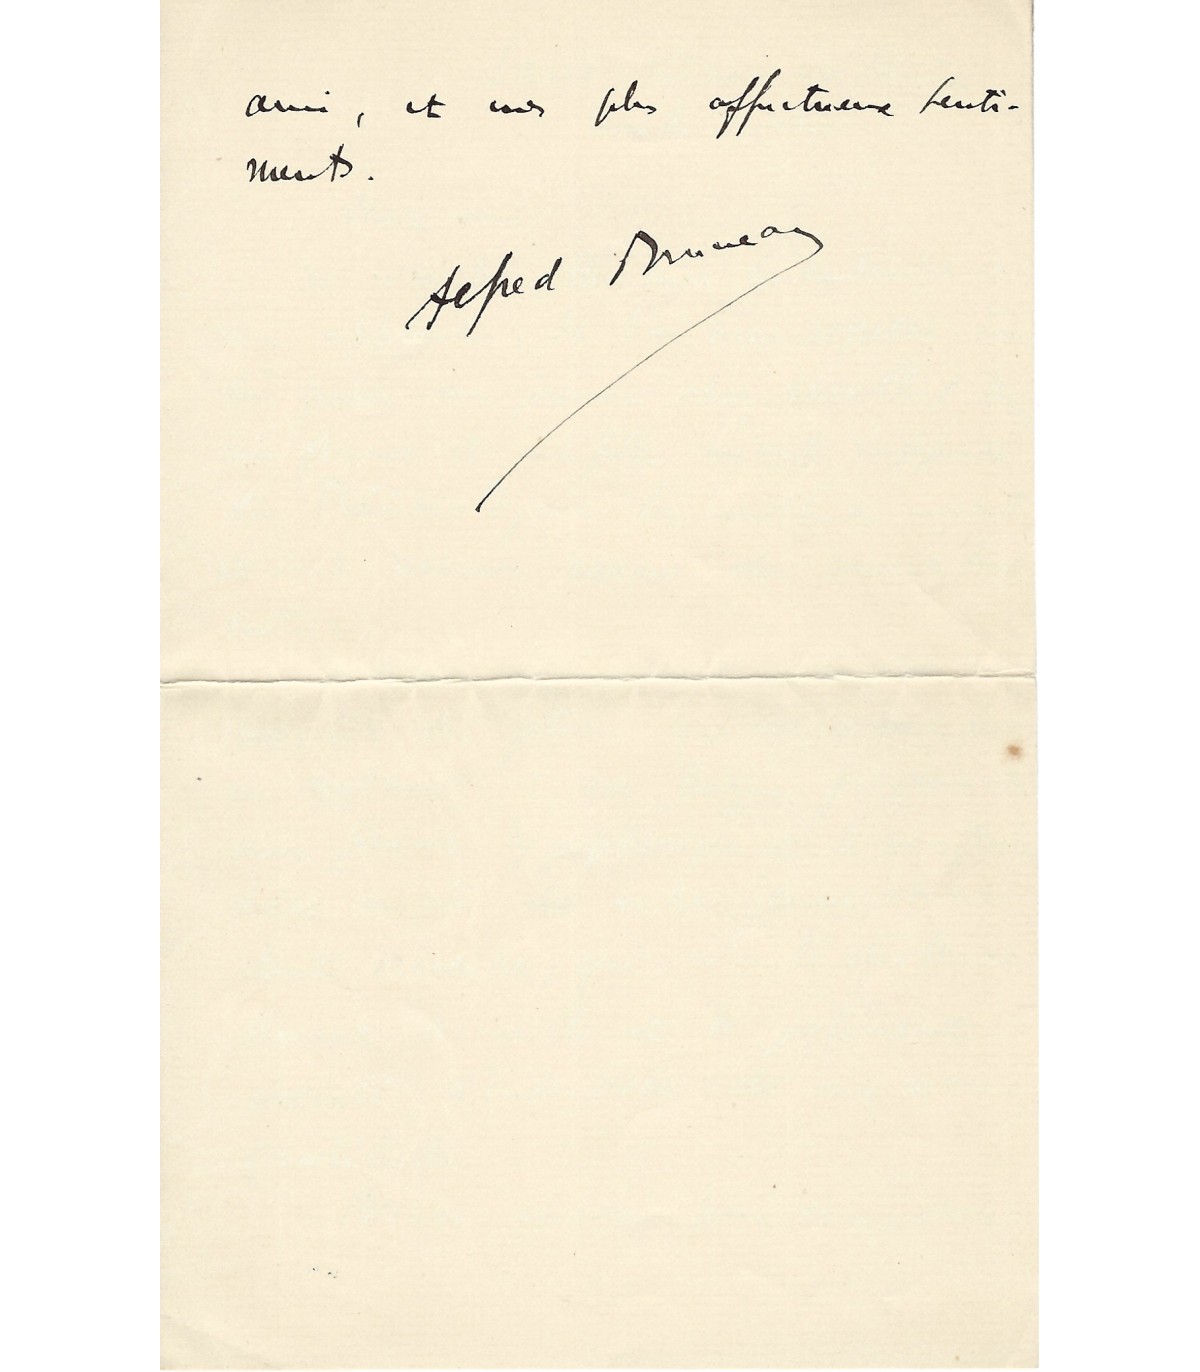 ami, et mes plus affectueux senti-
ments.
Alfred Bruneau